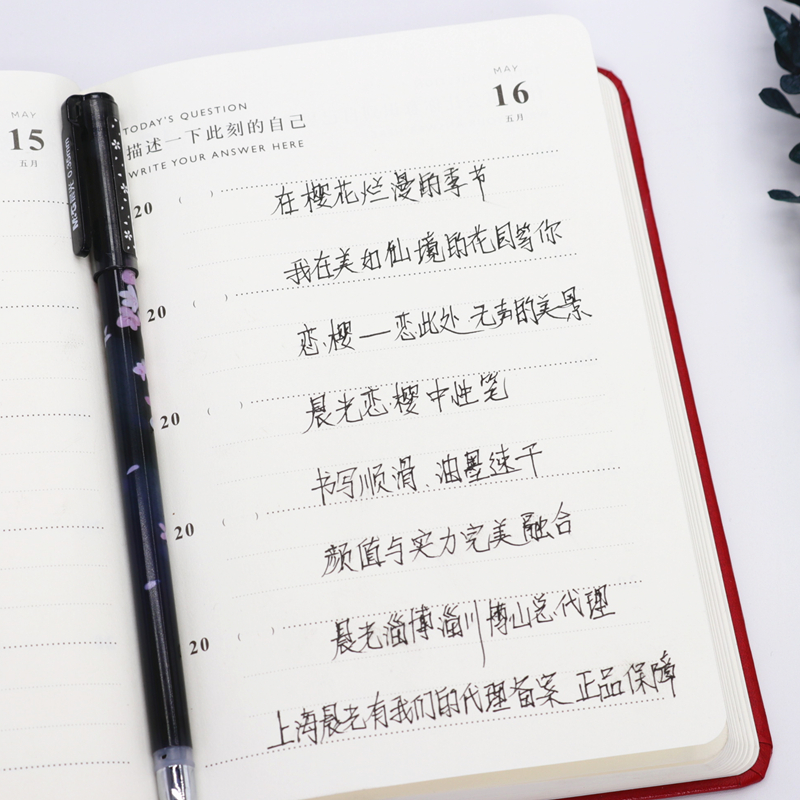 MAY
15
五月
M&G晨光 0.35mm
TODAY'S QUESTION
描述一下此刻的自己
WRITE YOUR ANSWER HERE
MAY
16
五月
20 ( )
在樱花烂漫的季节
我在美如仙境的花园等你
20 ( )
恋樱一恋此处无声的美景
20 ( )
晨光恋樱中性笔
书写顺滑、油墨速干
20 ( )
颜值与实力完美融合
20 ( )
晨光淄博淄川博山总代理
上海晨光有我们的代理备案 正品保障